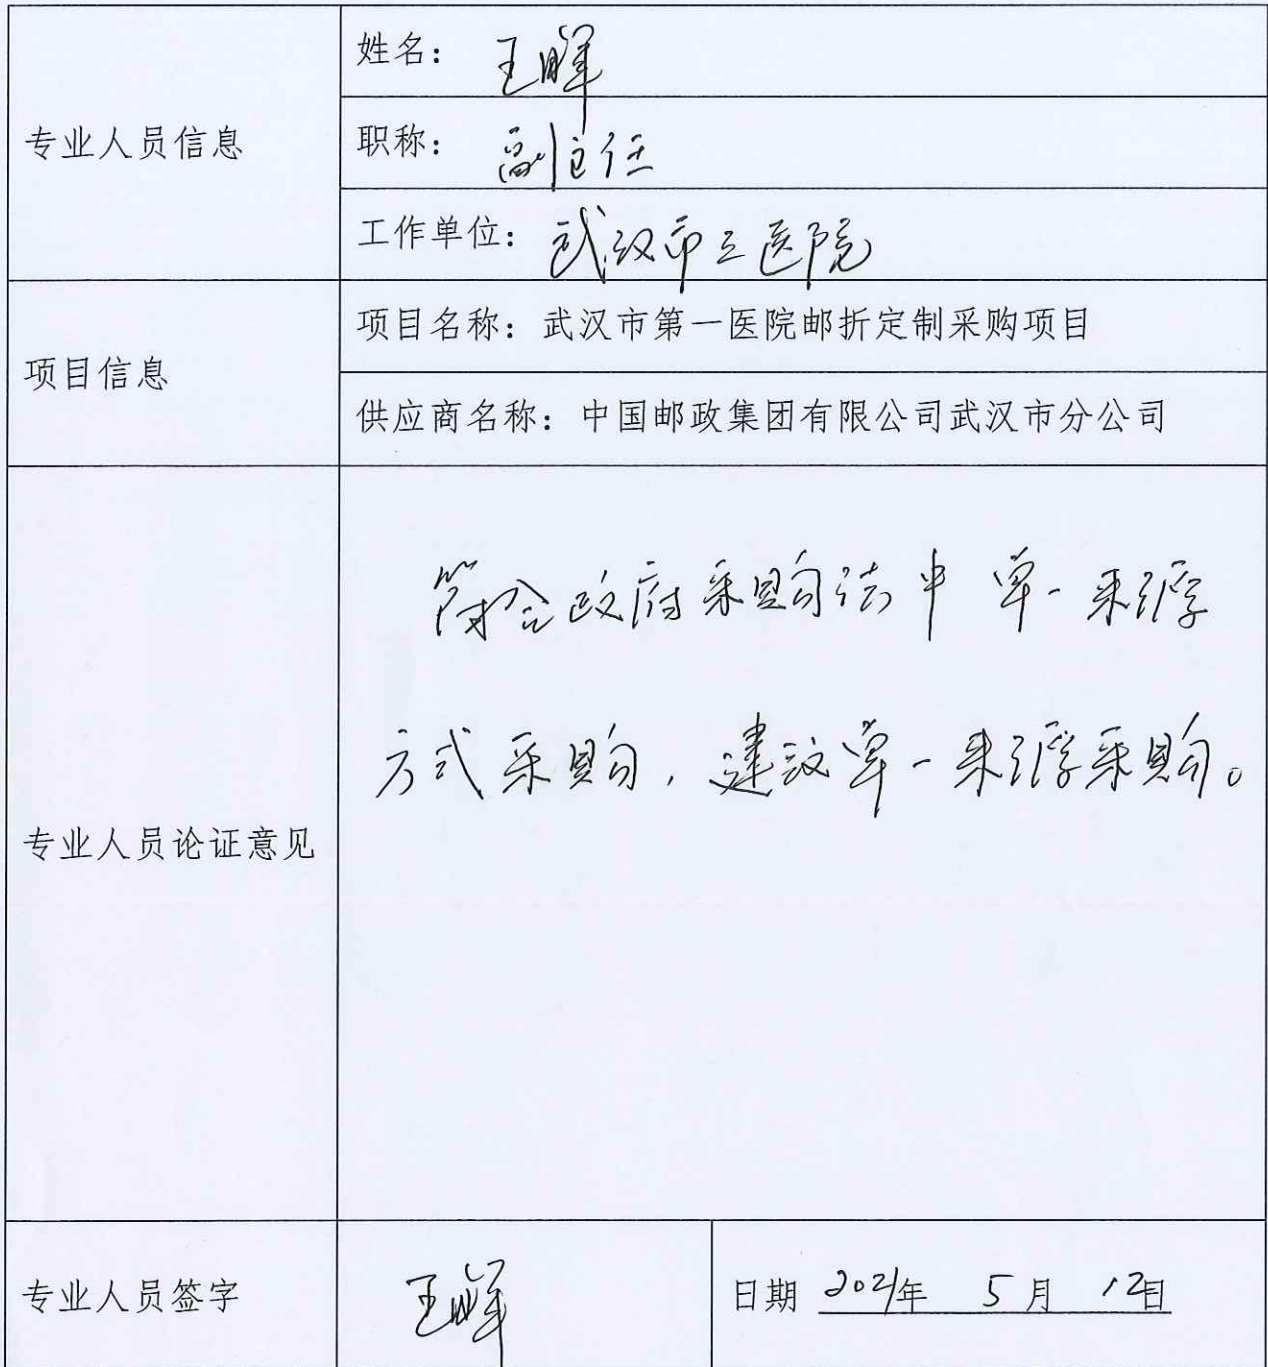 专业人员信息
姓名：王晖
职称：副主任
工作单位：武汉市三医院
项目信息
项目名称：武汉市第一医院邮折定制采购项目
供应商名称：中国邮政集团有限公司武汉市分公司
专业人员论证意见
符合政府采购法中单一来源
方式采购，建议单一来源采购。
专业人员签字
王晖
日期 2021年 5月 12日